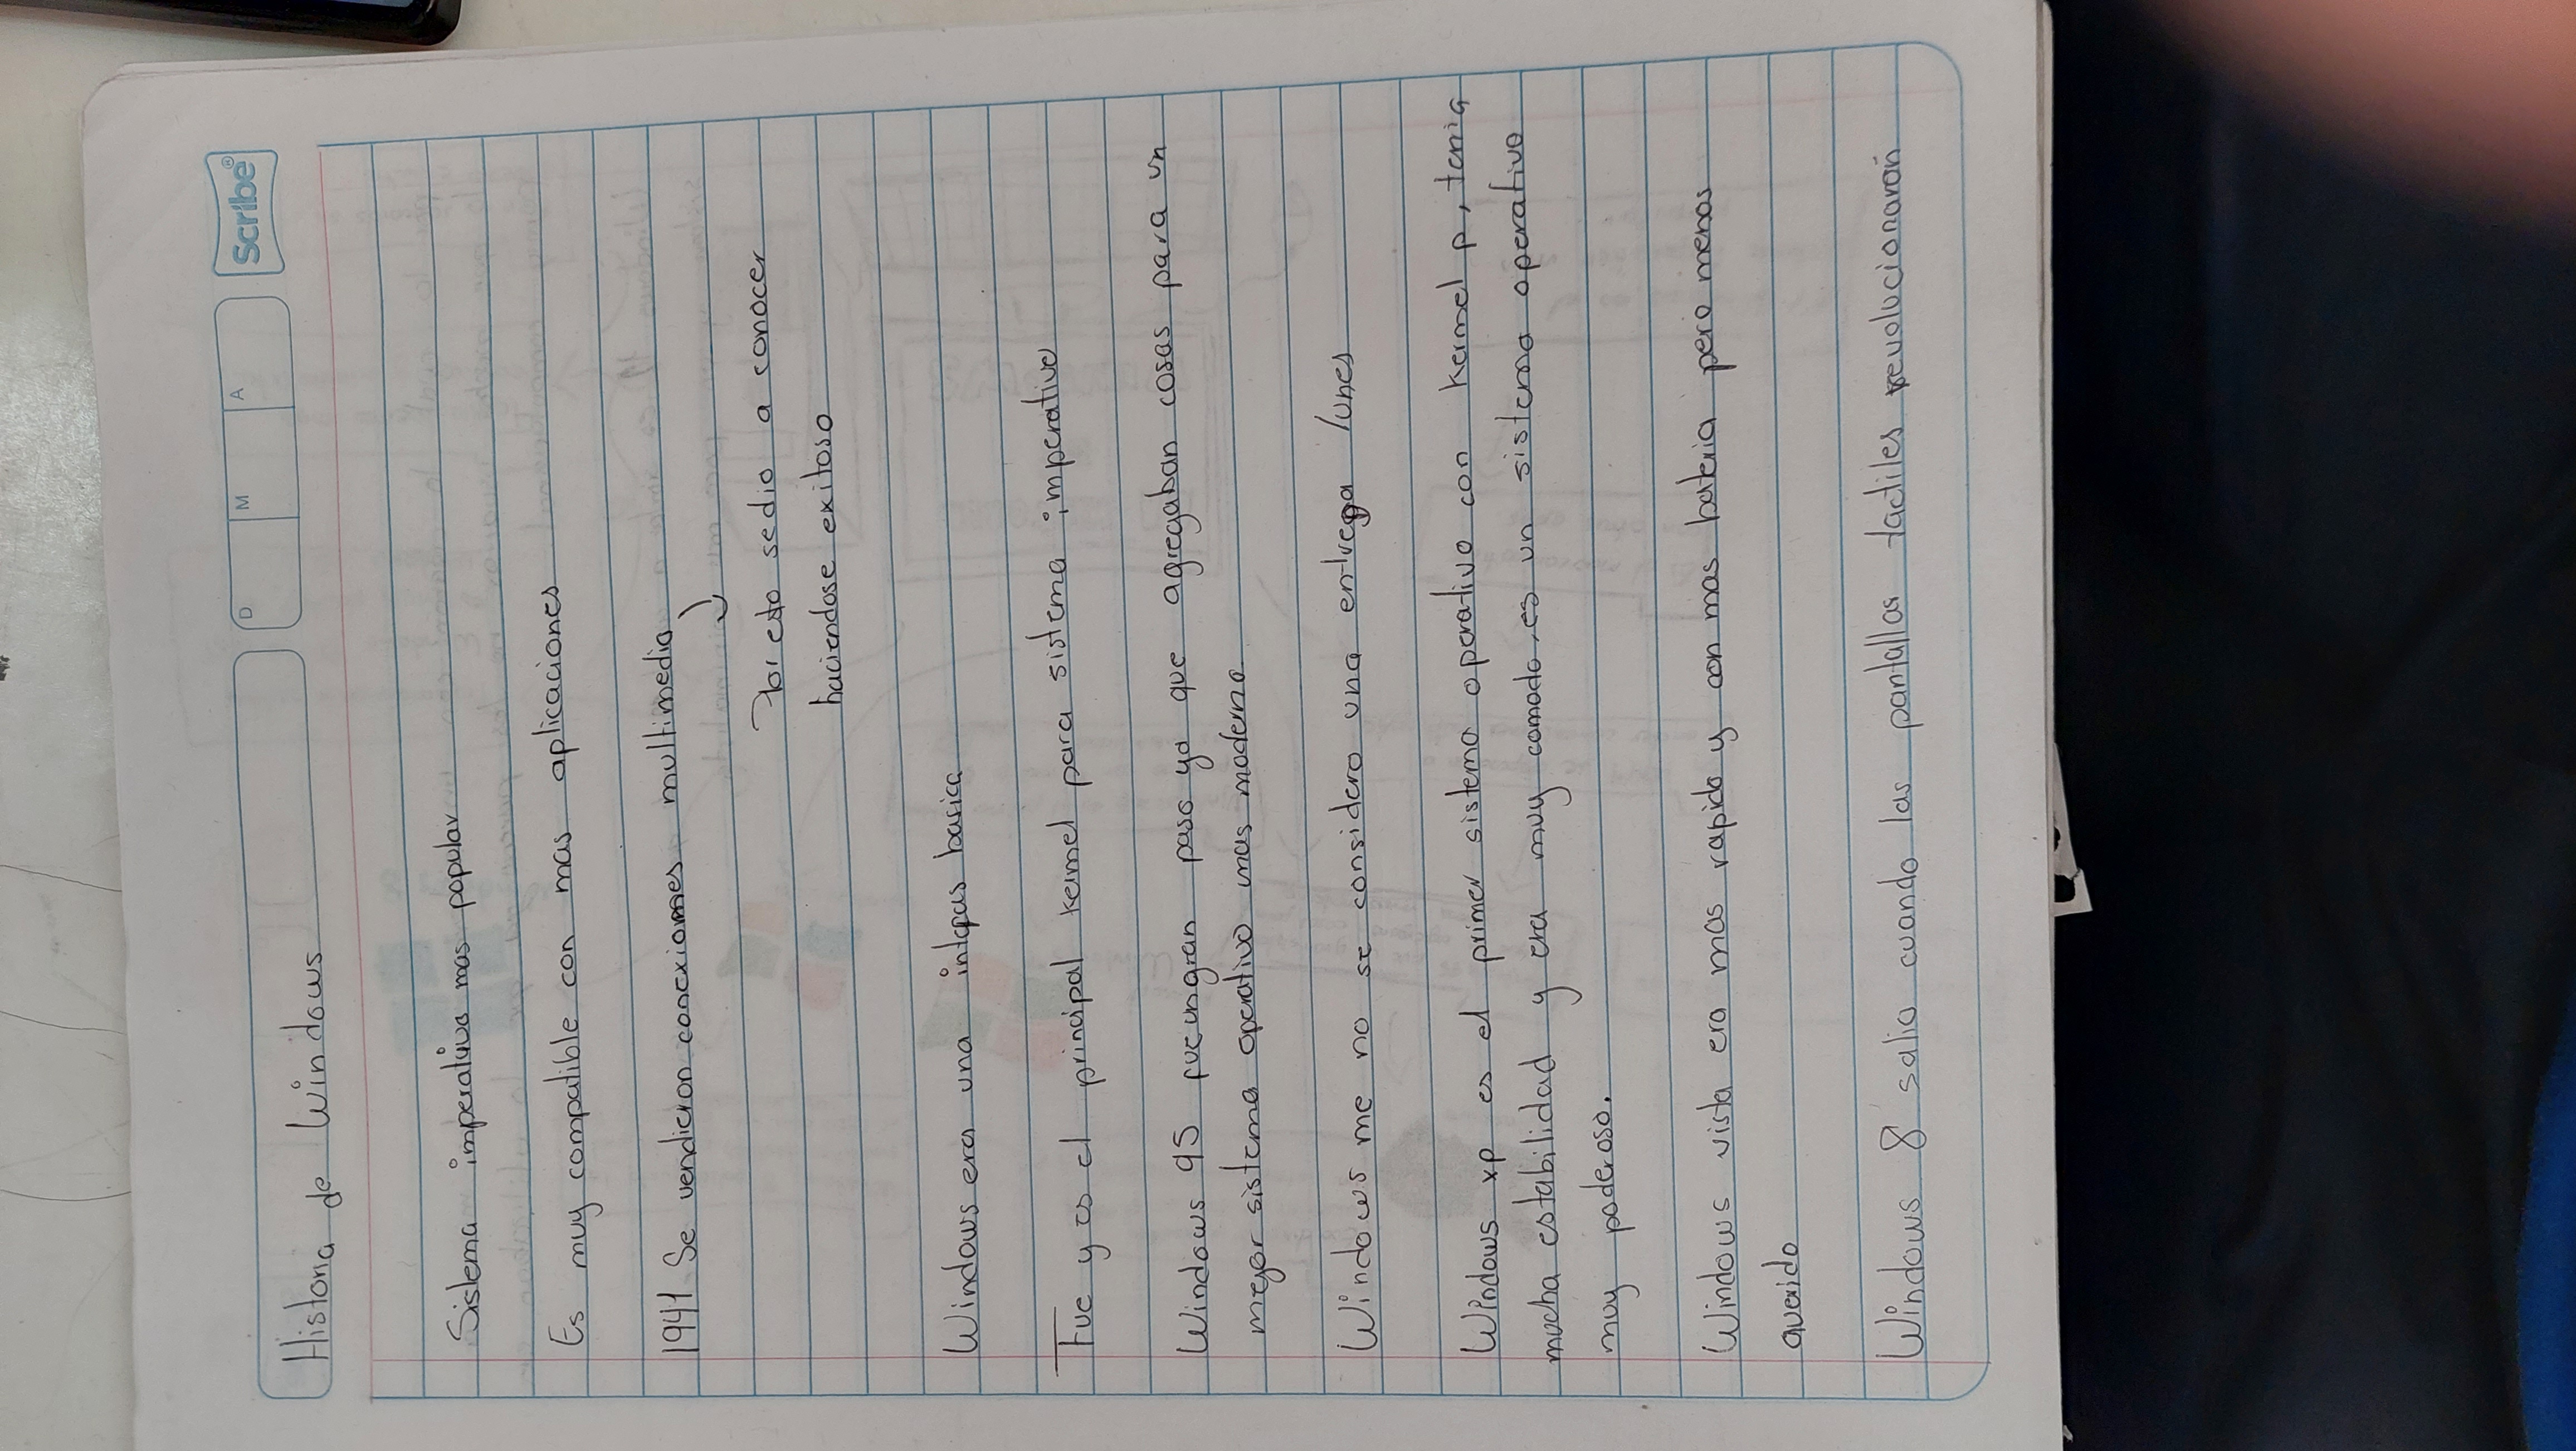 D M A Scribe®
Historia de Windows
Sistema imperativo mas popular
Es muy compatible con mas aplicaciones
1941 Se vendieron conexiones multimedia
Por esto sedio a conocer
haciendose exitoso
Windows era una basica
Fue y es el principal kernel para sistema imperativo
Windows 95 fue un gran paso ya que agregaban cosas para un
mejor sistema operativo mas moderno
Windows me no se considero una entrega lunes
Windows xp es el primer sistema operativo con kernel p, tenia
mucha estabilidad y era muy comodo, es un sistema operativo
muy poderoso.
Windows vista era mas rapido y con mas bateria pero menos
querido
Windows 8 salio cuando las pantallas tactiles revolucionaron